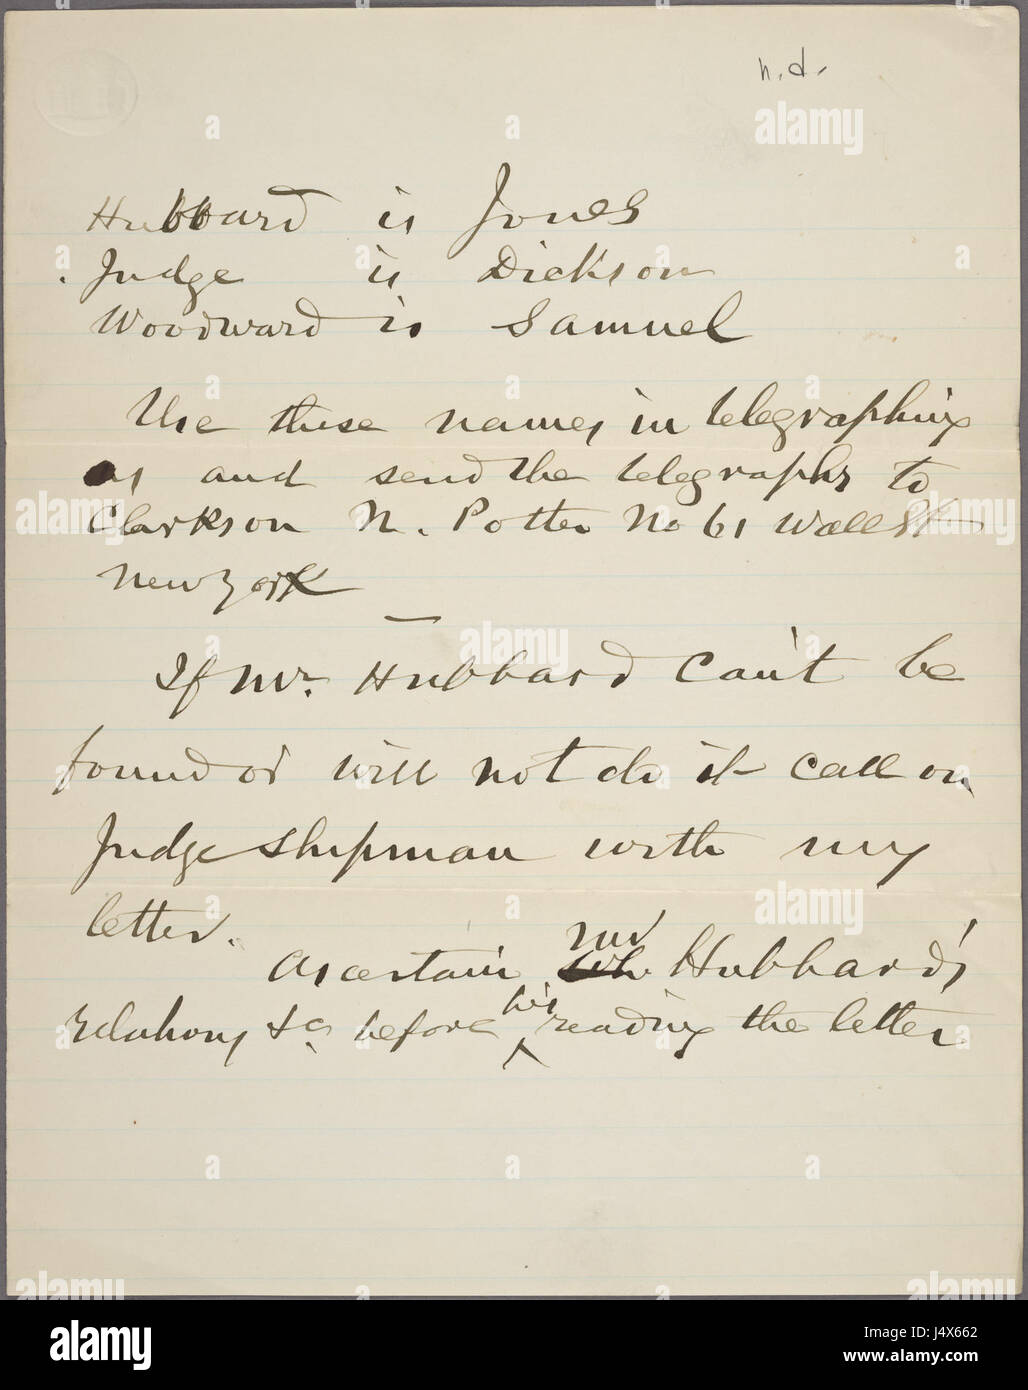 n.d.
Hubbard is Jones
Judge is Dickson
Woodward is Samuel
Use these names in telegraphing
as and send the telegraphs to
Clarkson N. Potter No 61 Wall St
New York
If Mr. Hubbard can't be
found or will not do it call on
Judge Shipman with my
letter.
Ascertain Mr Hubbard's
relations &c before his reading the letter
alamy
Image ID: J4X662
www.alamy.com